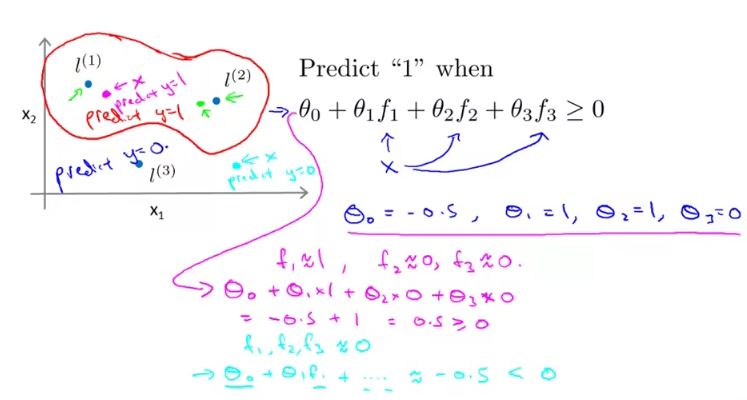 l⁽¹⁾
← x
predict y=1
l⁽²⁾
predict y=1
x₂
predict y=0.
l⁽³⁾
← x
predict y=0
x₁
Predict “1” when
→ θ₀ + θ₁f₁ + θ₂f₂ + θ₃f₃ ≥ 0
x
θ₀ = -0.5 , θ₁ = 1, θ₂ = 1, θ₃ = 0
f₁ ≈ 1 , f₂ ≈ 0, f₃ ≈ 0.
→ θ₀ + θ₁ × 1 + θ₂ × 0 + θ₃ × 0
= -0.5 + 1 = 0.5 ≥ 0
f₁, f₂, f₃ ≈ 0
→ θ₀ + θ₁f₁ + .... ≈ -0.5 < 0